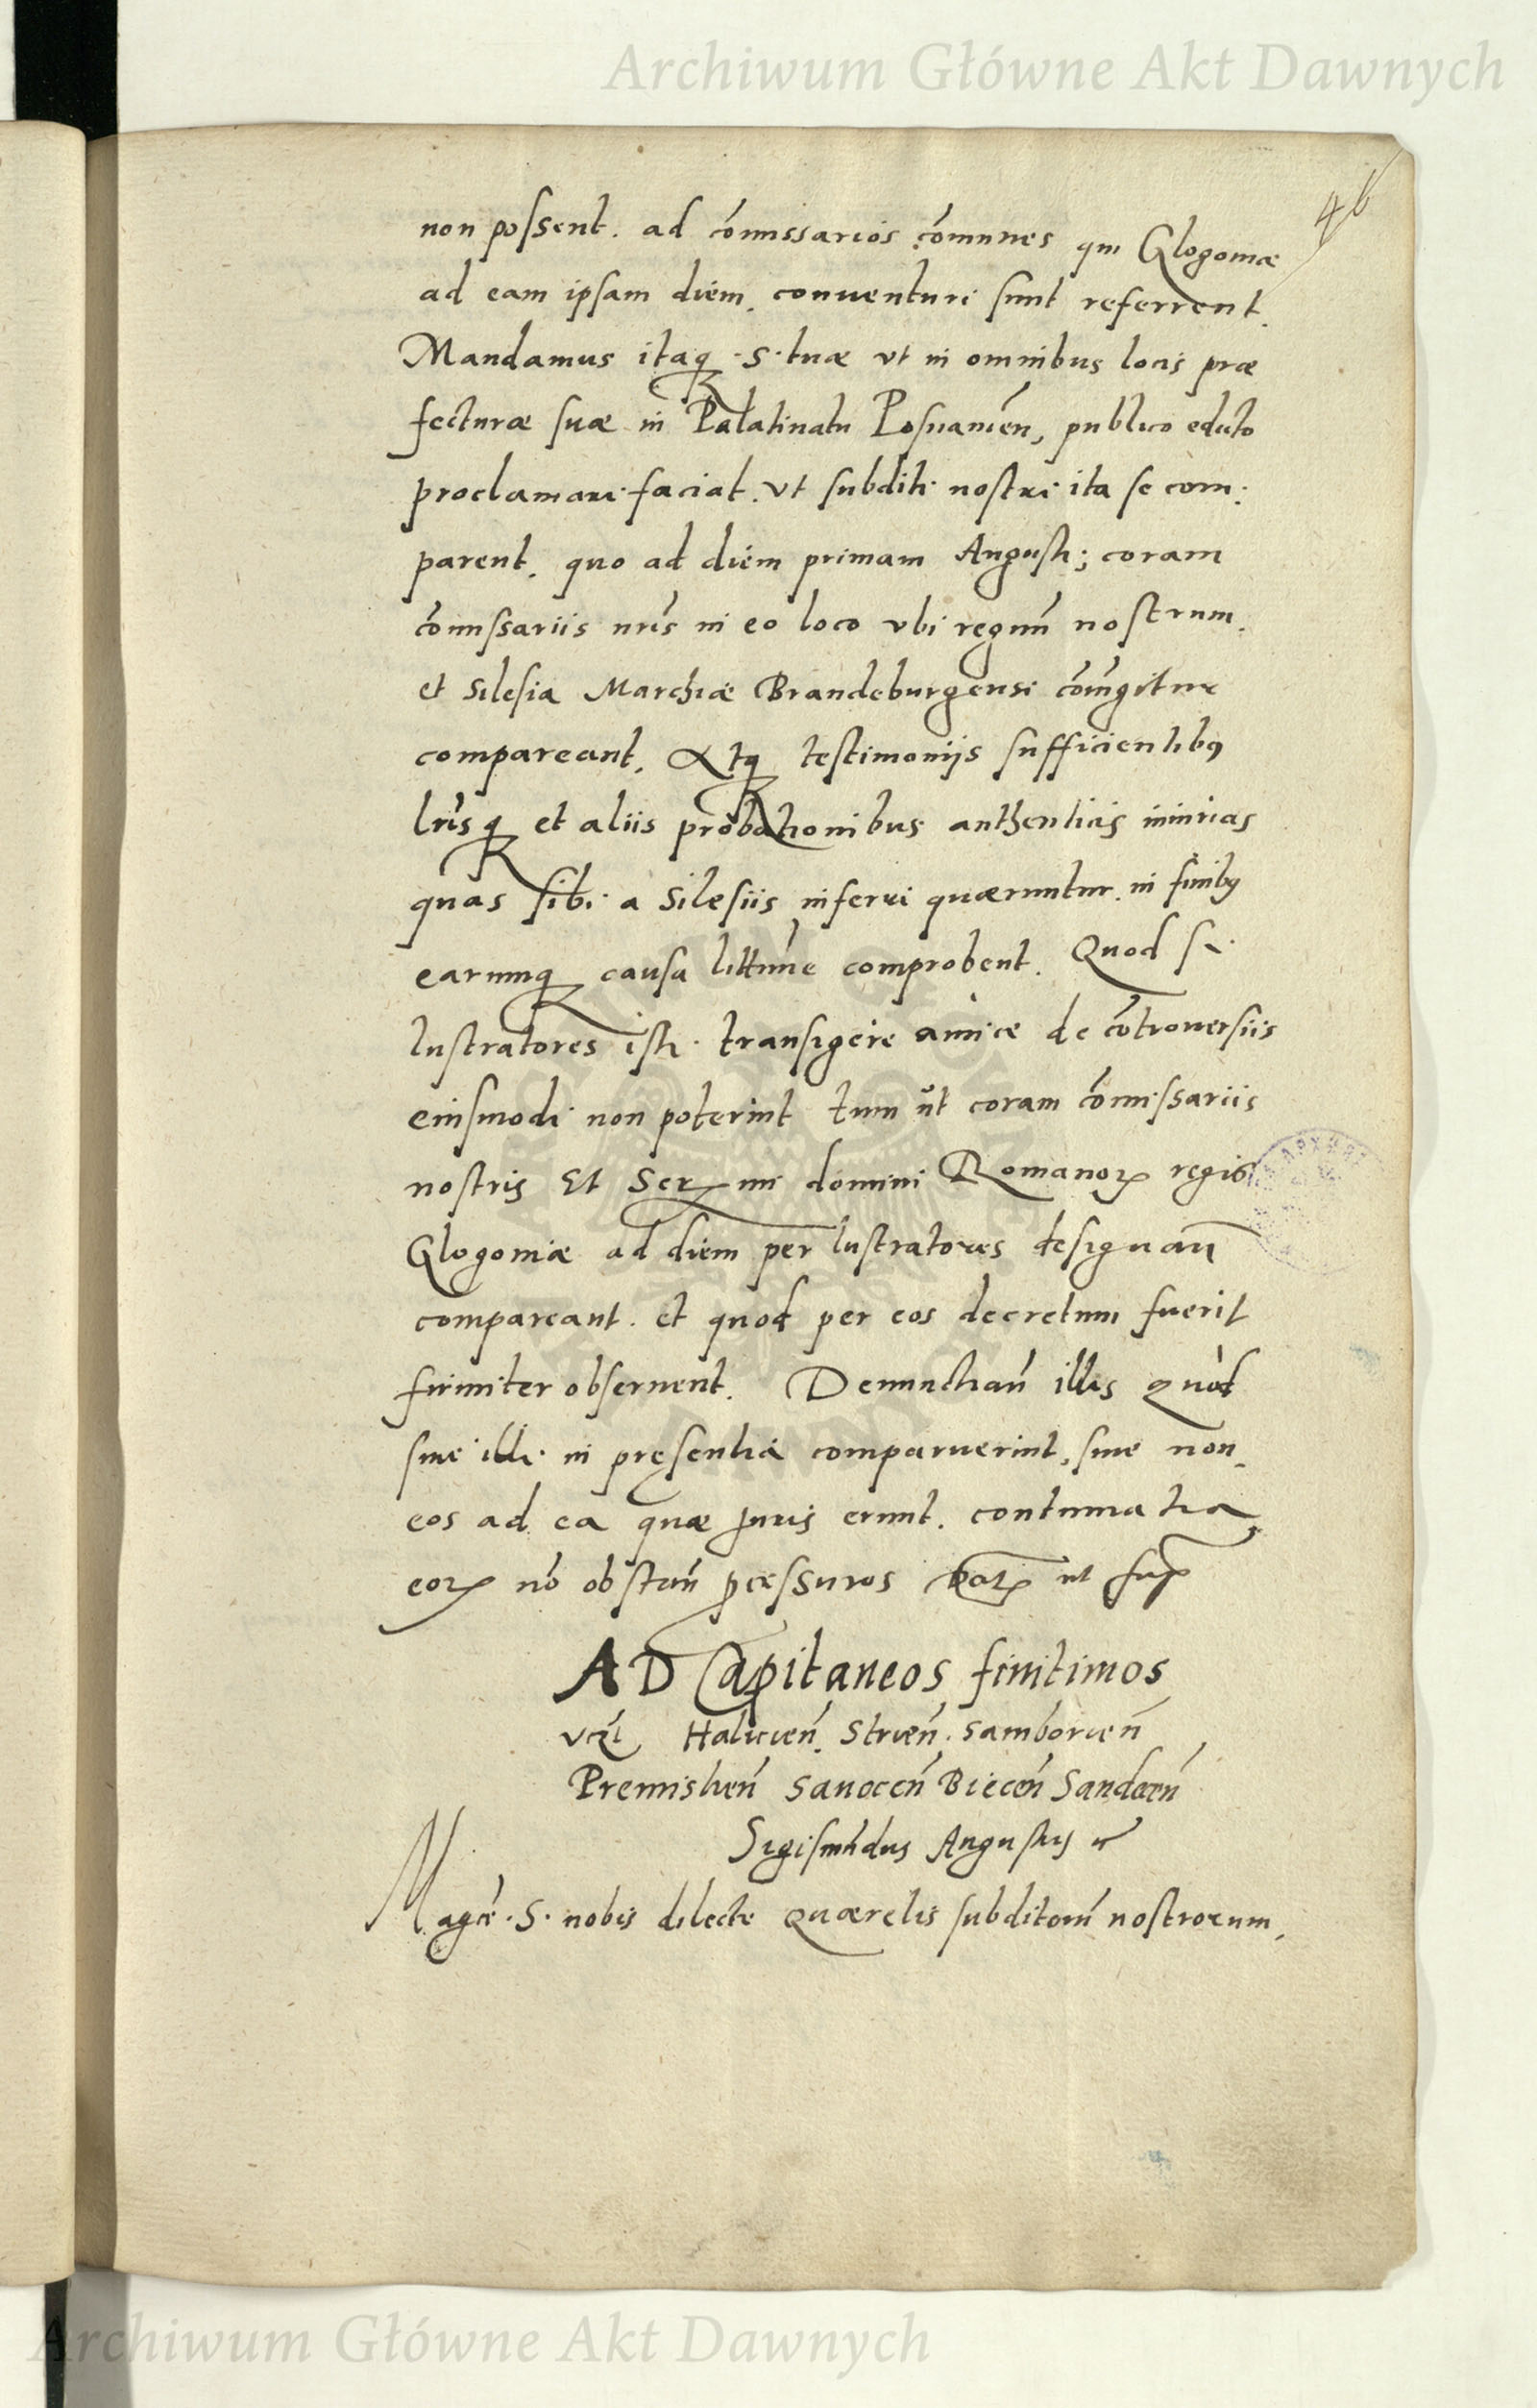 Archiwum Główne Akt Dawnych
46
non possent. ad cōmissarios cōmunes qui Glogouiæ
ad eam ipsam diem. conuenturi sunt referrent.
Mandamus itaq; ·S· tuæ vt in omnibus locis præ
fecturæ suæ in Palatinatu Posnanieñ, publico edicto
proclamari faciat. vt subditi nostri ita se com:
parent. quo ad diem primam Augusti; coram
cōmissariis nr̄is in eo loco vbi regnū nostrum.
et Silesia Marchiæ Brandeburgensi cōiūgitur
compareant. Atq; testimoniis sufficientibꝯ
lr̄isq; et aliis probationibus authenticis iniurias
quas sibi a Silesiis inferri quæruntur. in finibꝯ
earumq; causa comprobent. Quod si
lustratores isti transigere amice de cōtrouersiis
eiusmodi non poterint tum ut coram cōmissariis
nostris Et Serᵐⁱ domini Romanoꝝ regis
Glogouiæ ad diem per lustratores designatā
compareant. et quod per eos decretum fuerit
firmiter obseruent. Denunctiañ illis quòd
siue illi in pręsentia comparuerint, siue non.
eos ad ea quæ Juris erunt. contumatia
eoꝝ nō obstañ ꝓcessuros Datꝝ ut supᷓ
AD Capitaneos finitimos
vꝫt Halicieñ. Strieñ. Samborieñ
Premislieñ Sanoceñ Bieceñ Sandeceñ
Sigismūdus Augustus ꝛc
Magce ·S· nobis dilecte Quærelis subditorū nostrorum.
Archiwum Główne Akt Dawnych